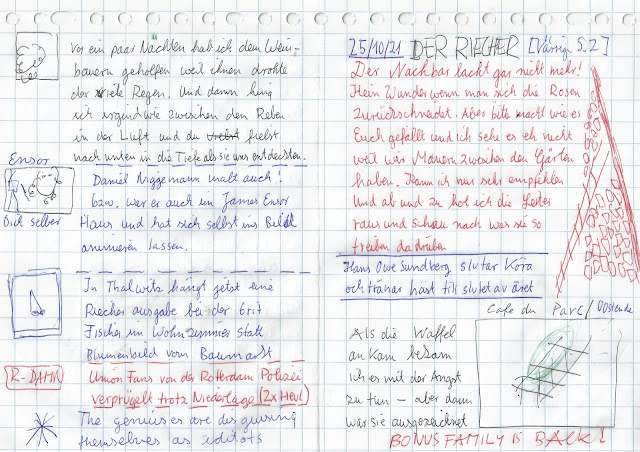 Vor ein paar Nächten hab ich dem Wein-
bauern geholfen weil ihnen drohte
der viele Regen. Und dann hing
ich irgendwie zwischen den Reben
in der Luft und du fielst
nach unten in die Tiefe als sie uns entdeckten.
Ensor
Dich selber
Daniel Niggemann malt auch!
bzw. war er auch im James Ensor
Haus und hat sich selbst ins Bild
animieren lassen.
In Thalwitz hängt jetzt eine
Riecher ausgabe bei der Grit
Fischer im Wohnzimmer statt
Blumenbild vom Baumarkt
R-DAMN
Union Fans von der Rotterdam Polizei
verprügelt trotz Niederlage (2x Heul)
The genius es are disguising
themselves as editors
25/10/21 DER RIECHER [Värriga S.2]
Der Nachbar lackt gar nicht mehr!
Kein Wunder wenn man sich die Rosen
zurückschneidet. Aber bitte macht wie es
Euch gefällt und ich sehe es eh nicht
weil wir Mauern zwischen den Gärten
haben. Kann ich nur sehr empfehlen
und ab und zu hol ich die Leiter
raus und schau nach was sie so
treiben da drüben
Hans Owe Sundberg slutar köra
och tränar häst till slutet av året
Cafe du Parc/Oostende
Als die Waffel
an kam bekam
ich es mit der Angst
zu tun – aber dann
war sie ausgezeichnet
BONUS FAMILY IS BACK!